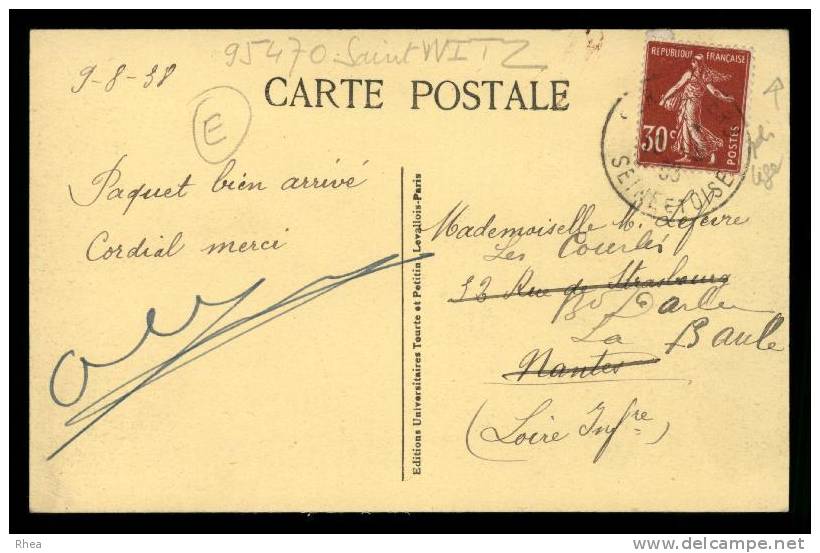 95470 Saint WITZ
9-8-38
CARTE POSTALE
E
REPUBLIQUE FRANÇAISE
30c
POSTES
SEINE ET OISE
Paquet bien arrivé
Cordial merci
Editions Universitaires Tourte et Petitin, Levallois-Paris
Mademoiselle M. Lefèvre
Les
13 Rue de Strasbourg
La Baule
Nantes
(Loire Infre)
Rhea
www.delcampe.net